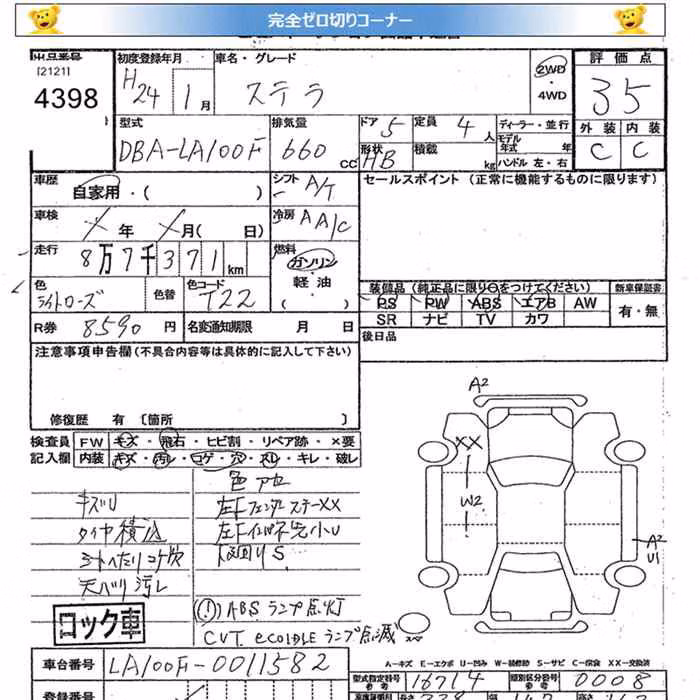 完全ゼロ切りコーナー
[2121]
4398
初度登録年月
H24 1月
車名・グレード
ステラ
2WD
・
4WD
評価点
35
外装 内装
C C
型式
DBA-LA100F
排気量
660 CC
ドア 5
形状 HB
定員 4 人
積載 kg
ディーラー・並行
モデル年式 年
ハンドル 左・右
車歴 自家用・( )
シフト A/T
セールスポイント (正常に機能するものに限ります)
車検 X年 X月( 日)
冷房 AA/C
走行 8万7千371km
燃料
ガソリン
軽油
( )
色 ライトローズ
色替
色コード T22
装備品 (純正品に限り○をつけてください)
新車保証書
PS PW ABS エアB AW
SR ナビ TV カワ
有・無
R券 8590円
名変通知期限 月 日
後日品
注意事項申告欄 (不具合内容等は具体的に記入して下さい)
修復歴 有 〔箇所 〕
検査員 FW キズ・飛石・ヒビ割・リペア跡・×要
記入欄 内装 キズ・汚レ・コゲ・穴・スレ・キレ・破レ
キズU
タイヤ積込
シートへたりコゲ穴
天バリ汚レ
コック車
色アセ
左Fフェンダーステー XX
下回りS
(!) ABSランプ点灯
CVT ecoIDLEランプ点滅
A2
XX
W2
A2
U1
スペア
A-キズ E-エクボ U-凹み W-補修跡 S-サビ C-腐食 XX-交換済
車台番号 LA100F-0011582
型式指定番号 参考 16714
類別区分番号 参考 0008
登録番号